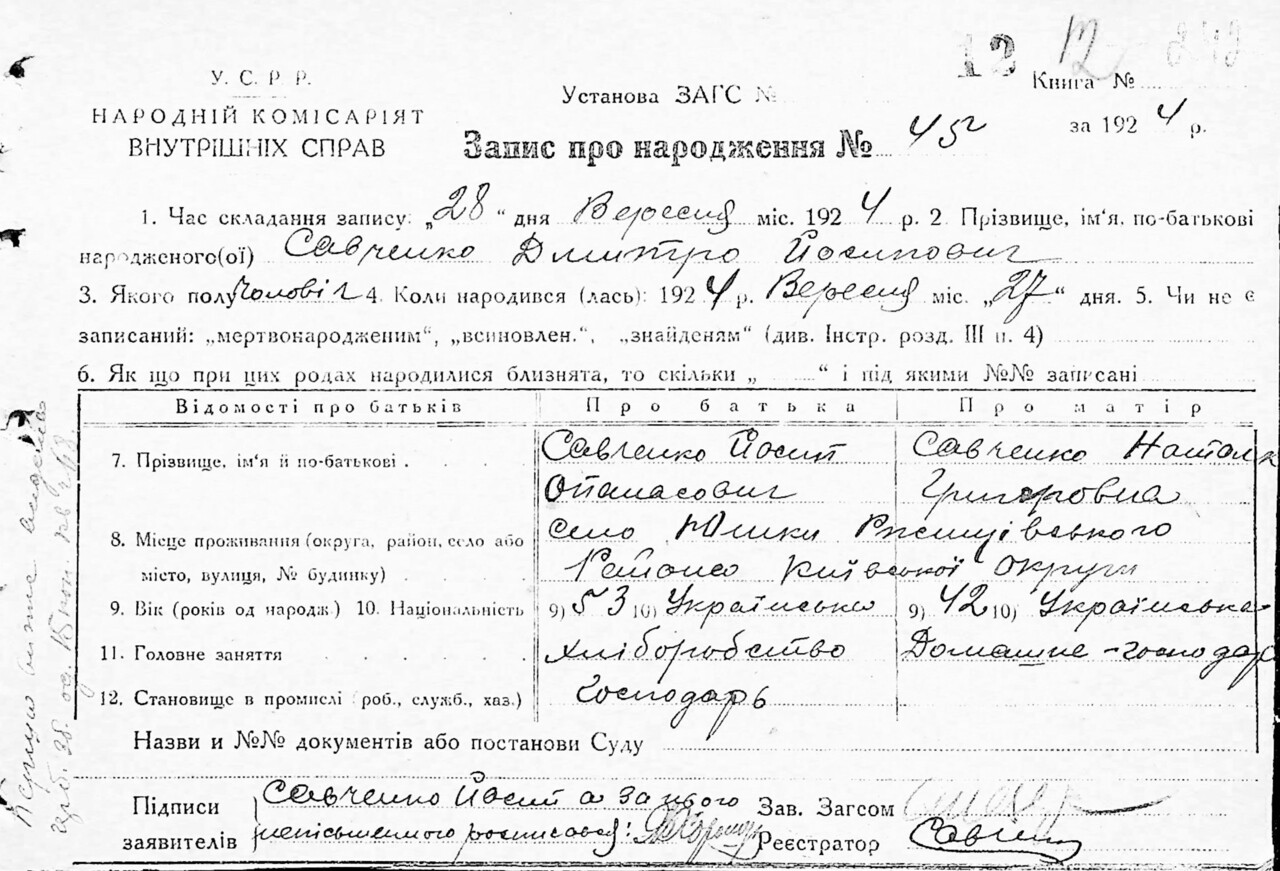 12 12 242
У. С. Р. Р.
НАРОДНІЙ КОМІСАРІЯТ
ВНУТРІШНІХ СПРАВ
Установа ЗАГС №
Книга №
Запис про народження № 45
за 1924 р.
1. Час складання запису: „28“ дня Вересня міс. 1924 р. 2. Прізвище, ім'я, по-батькові
народженого(ої) Савченко Дмитро Йосипович
3. Якого полу Чоловіч 4. Коли народився (лась): 1924 р. Вересня міс. „27“ дня. 5. Чи не є
записаний: „мертвонародженим“, „всиновлен.“, „знайденям“ (див. Інстр. розд. III п. 4)
6. Як що при цих родах народилися близнята, то скільки „ “ і під якими №№ записані
Відомості про батьків Про батька Про матір
7. Прізвище, ім'я й по-батькові Савченко Йосип Савченко Наталк
Опанасович Григоровна
8. Місце проживання (округа, район, село або село Юшки Ржищівського
місто, вулиця, № будинку) Району Київської Округи
9. Вік (років од народж.) 10. Національність 9) 53 10) Українська 9) 42 10) Українська
11. Головне заняття хліборобство Домашне-господар
12. Становище в промислі (роб., служб., хаз.) Господарь
Назви и №№ документів або постанови Суду
Підписи Савченко Йосип а за нього Зав. Загсом
заявителів неписьменного росписовся: Реєстратор